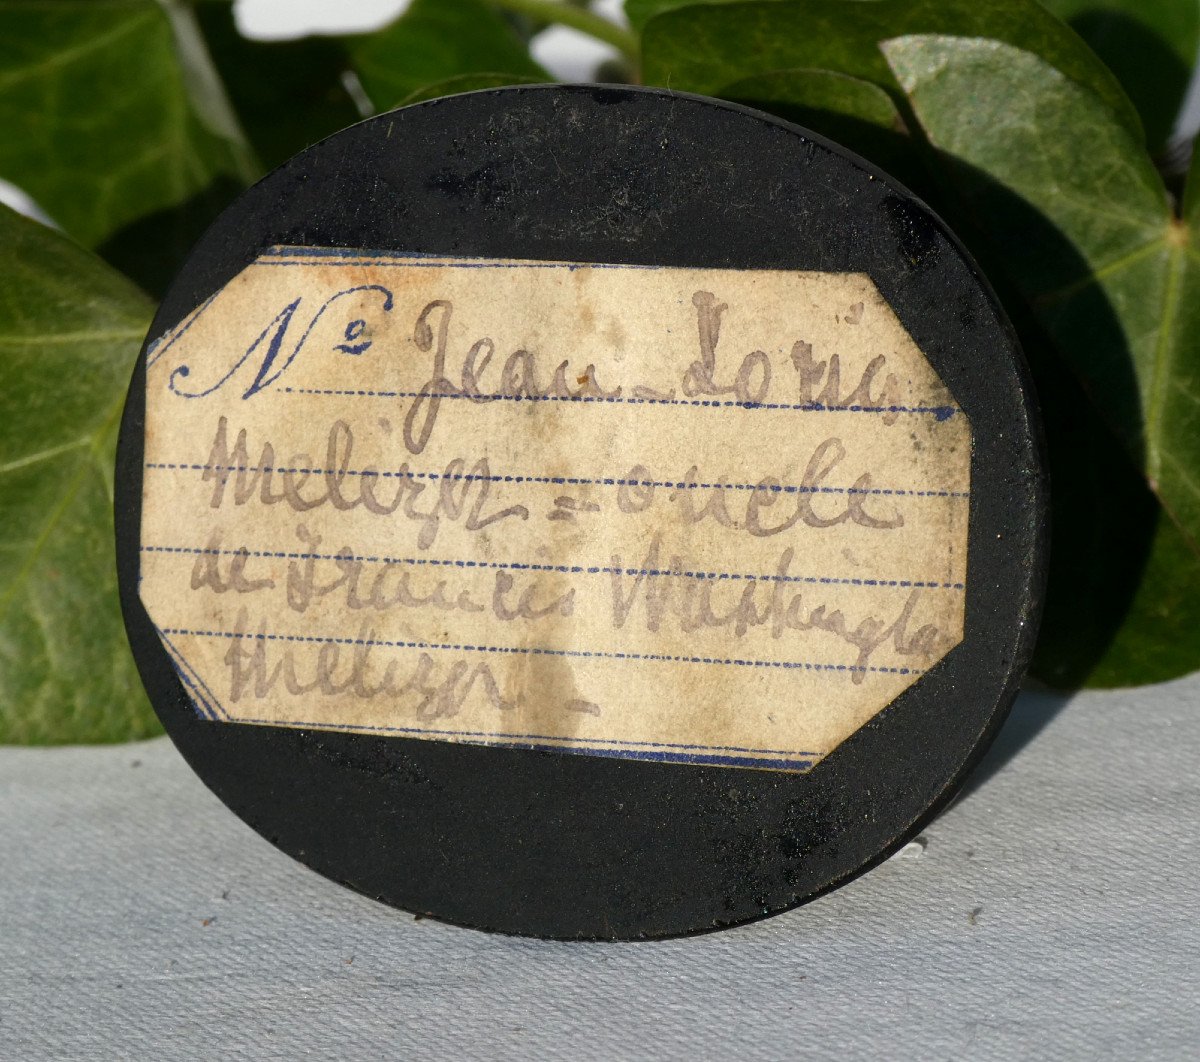 Nº Jean-Louis
Melizer = oncle
de Francis Washington
Melizer -